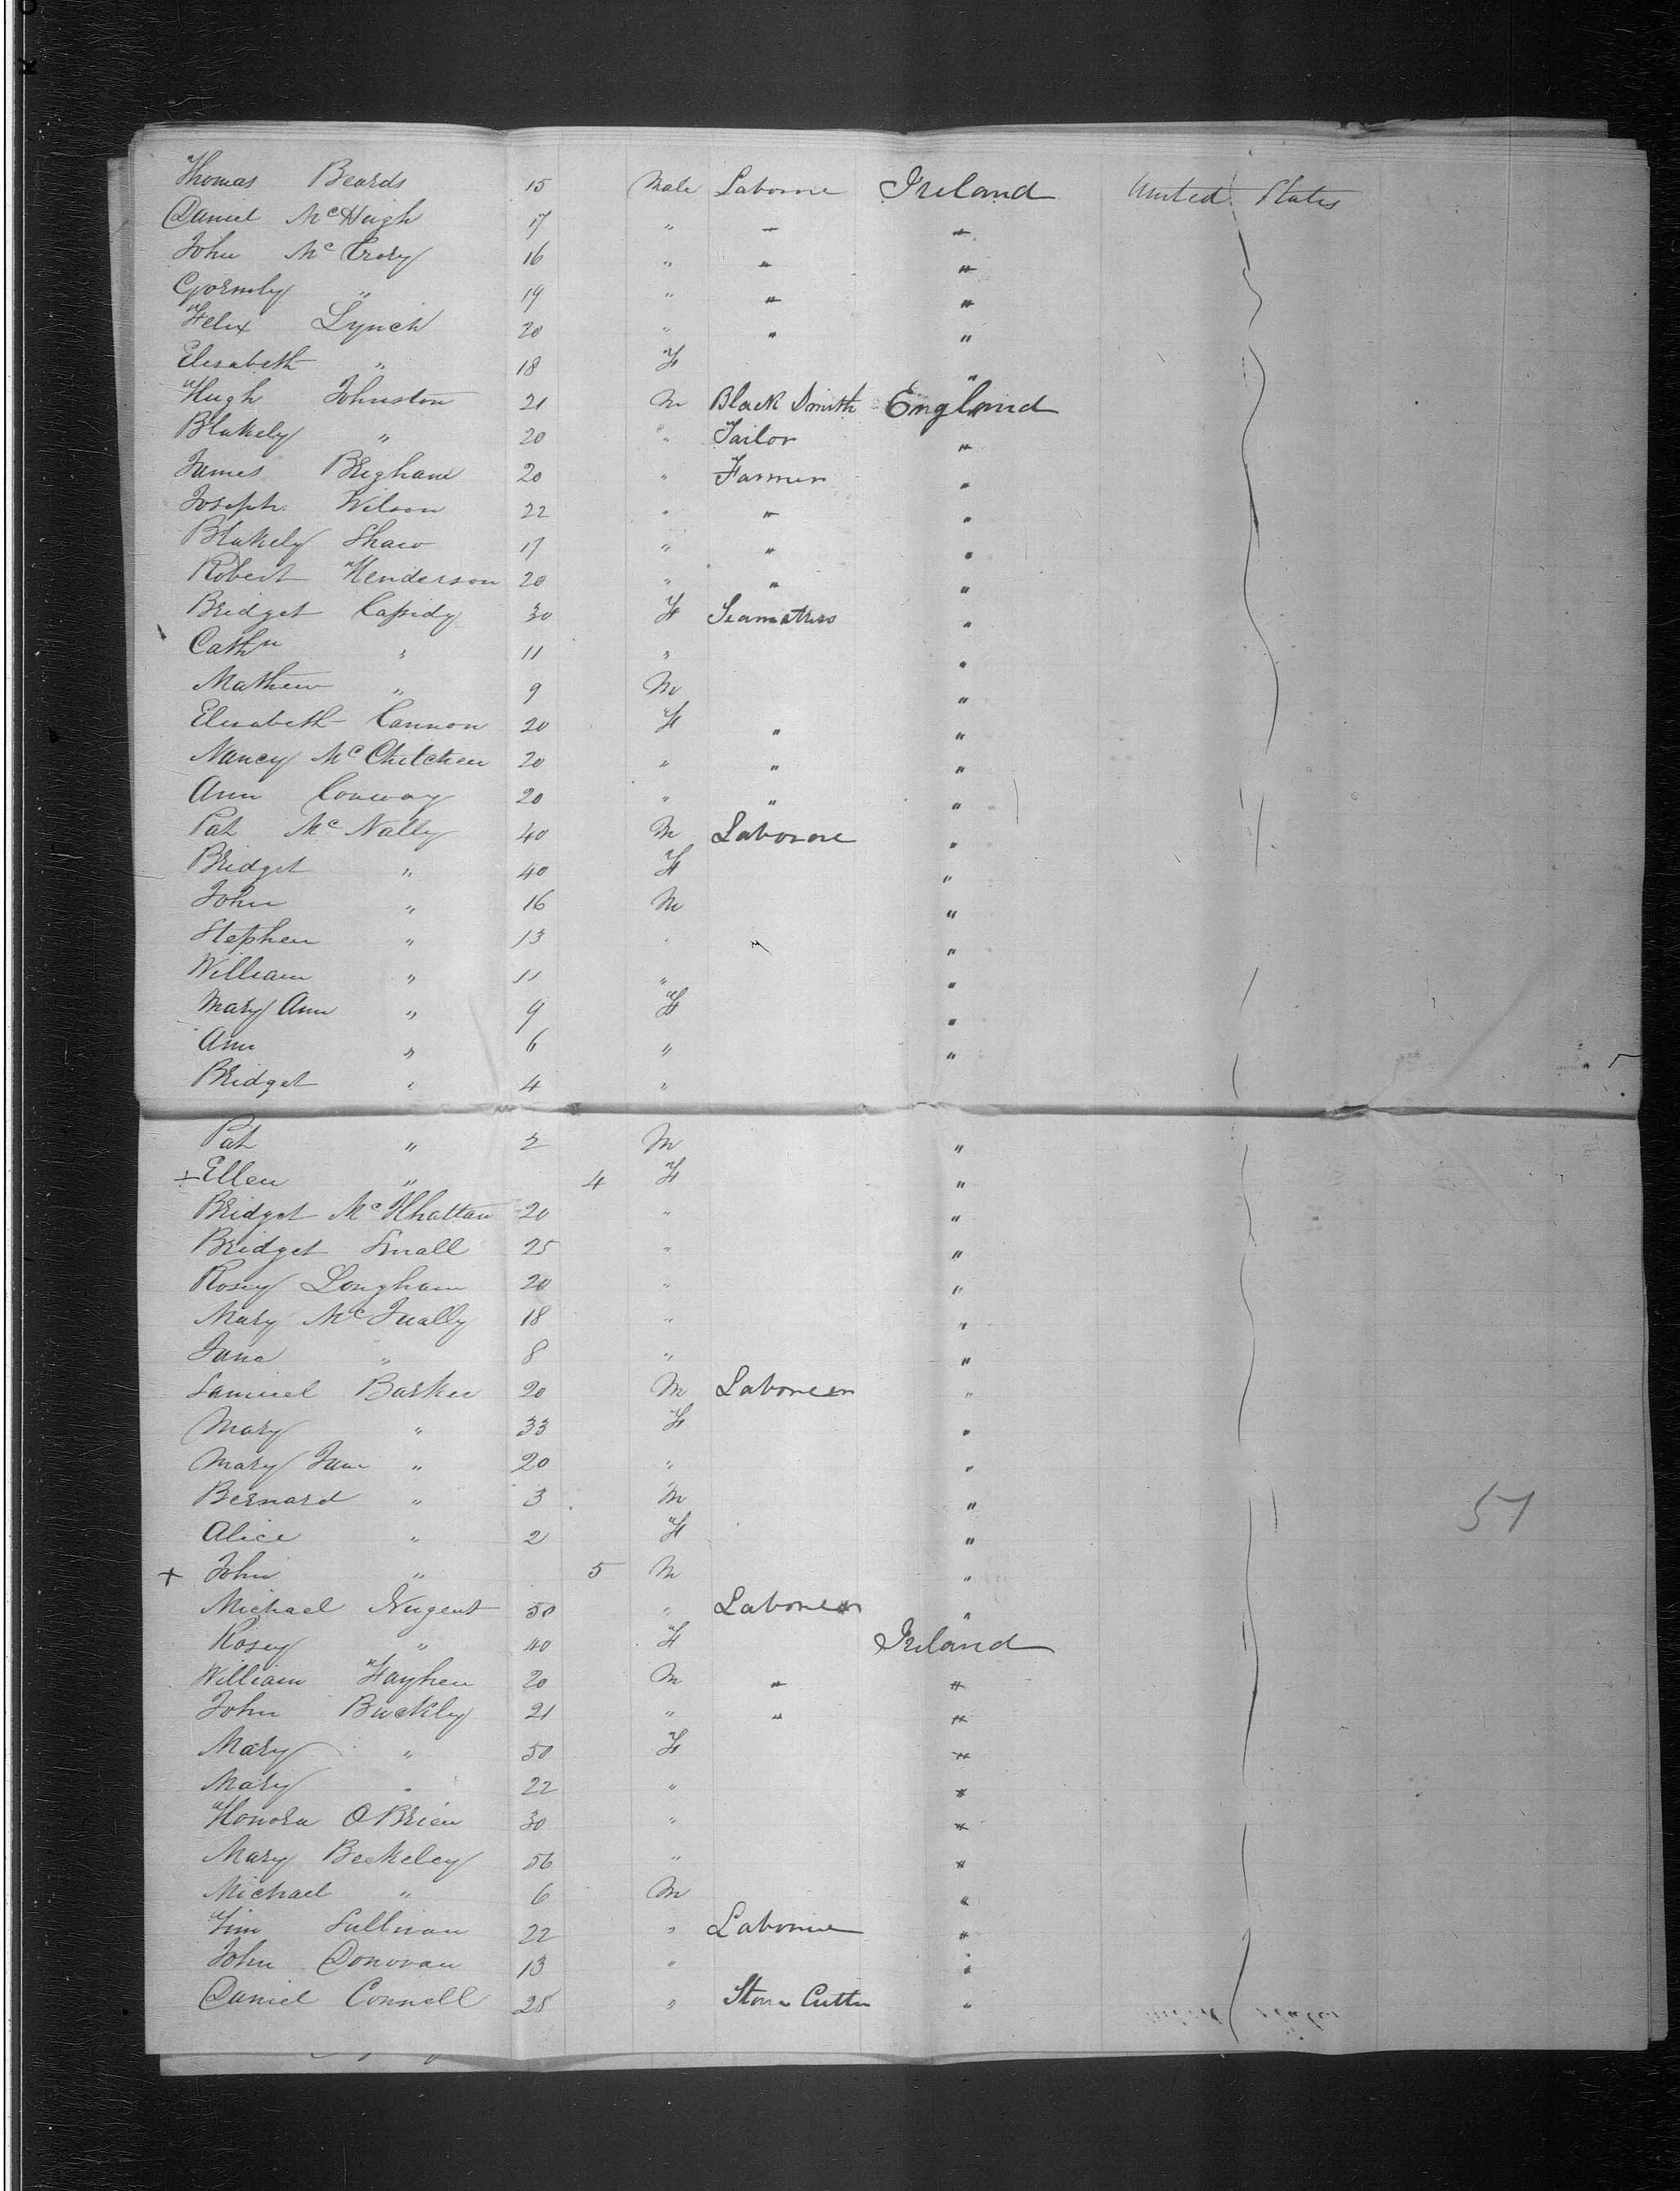 Thomas Beards 15 Male Laborne Ireland United States
Daniel McHugh 17 " " "
John McCrory 16 " " "
Gormly " 19 " " "
Felix Lynch 20 " " "
Elisabeth " 18 F "
Hugh Johnston 21 M Black Smith England
Blakely " 20 " Tailor "
James Brigham 20 " Farmer "
Joseph Wilson 22 " " "
Blakely Shaw 17 " " "
Robert Henderson 20 " " "
Bridget Cassidy 30 F Seamstress "
Cathn " 11 " "
Mathew " 9 M "
Elisabeth Cannon 20 F " "
Nancy McChetchen 20 " " "
Ann Conway 20 " " "
Pat McNally 40 M Laborne "
Bridget " 40 F "
John " 16 M "
Stephen " 13 " "
William " 11 " "
Mary Ann " 9 F "
Ann " 6 " "
Bridget " 4 "
Pat " M "
+ Ellen " 4 F "
Bridget McKhattan 20 " "
Bridget Small 25 " "
Rosey Longham 20 " "
Mary McInally 18 " "
Jane " 8 " "
Samuel Barker 20 M Laboreer "
Mary " 33 F "
Mary Jane " 20 " "
Bernard " 3 M "
Alice " 2 F "
+ John " 5 M "
Michael Nugent 50 " Laborer "
Rosey " 40 F Ireland
William Hayhen 20 M " "
John Buckly 21 " " "
Mary " 50 F "
Mary " 22 " "
Honora OBrien 30 " "
Mary Beckeley 56 " "
Michael " 6 M "
Tim Sullivan 22 " Laborne "
John Donovan 13 " "
Daniel Connell 25 " Stone Cutter "
57